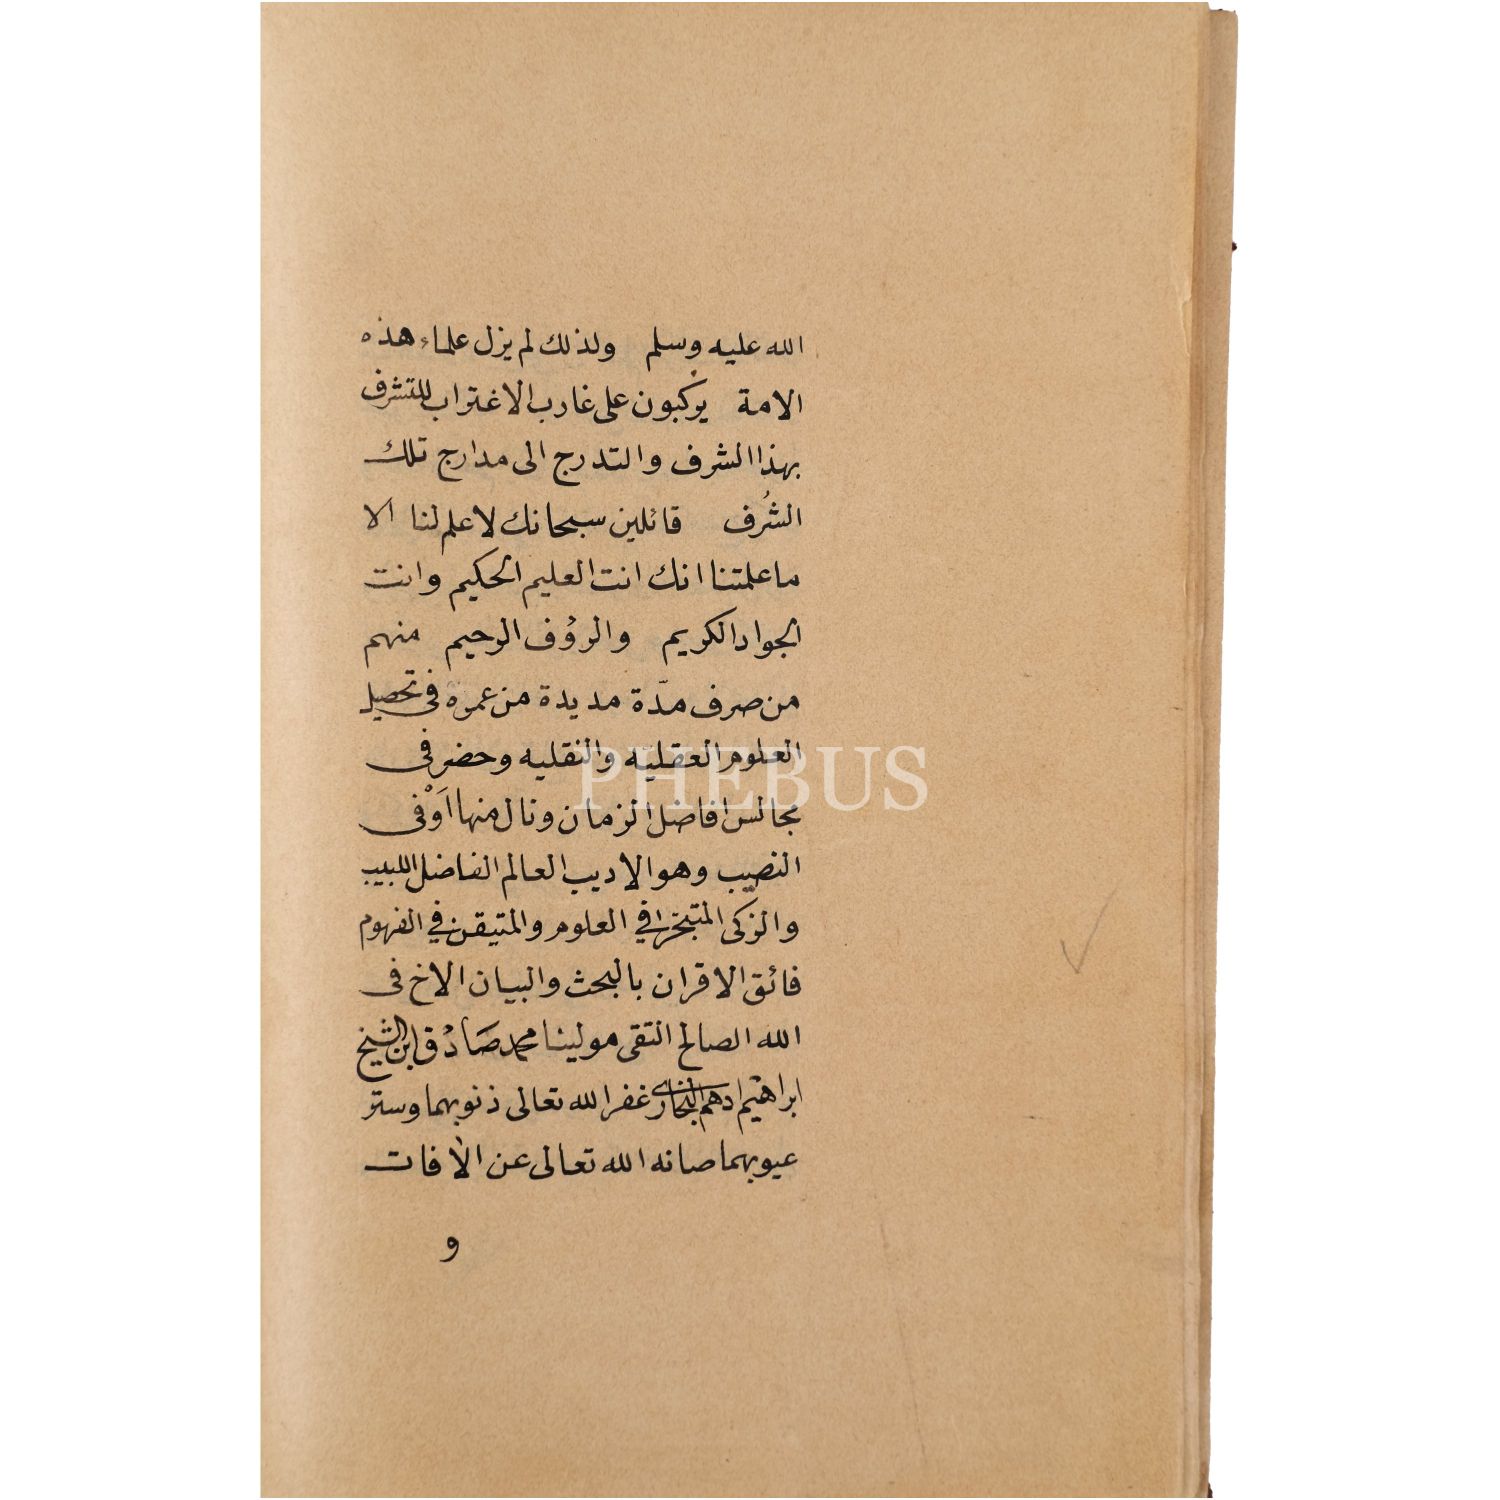 الله عليه وسلم ولذلك لم يزل علماء هذه
الامة يركبون على غارب الاغتراب للتشرف
بهذا الشرف والتدرج الى مدارج تلك
الشُرف قائلين سبحانك لا علم لنا الا
ما علمتنا انك انت العليم الحكيم وانت
الجواد الكريم والرؤف الرحيم منهم
من صرف مدّة مديدة من عمره فى تحصيل
العلوم العقليه والنقليه وحضر فى
مجالس افاضل الزمان ونال منها اَوْفى
النصيب وهو الاديب العالم الفاضل اللبيب
والزكى المتبخر في العلوم والمتيقن في الفهوم
فائق الاقران بالبحث والبيان الاخ فى
الله الصالح التقى مولينا محمد صَادْق ابن الشيخ
ابراهيم ادهم البخارى غفر الله تعالى ذنوبهما وستر
عيوبهما صانه الله تعالى عن الافات
و
PHEBUS